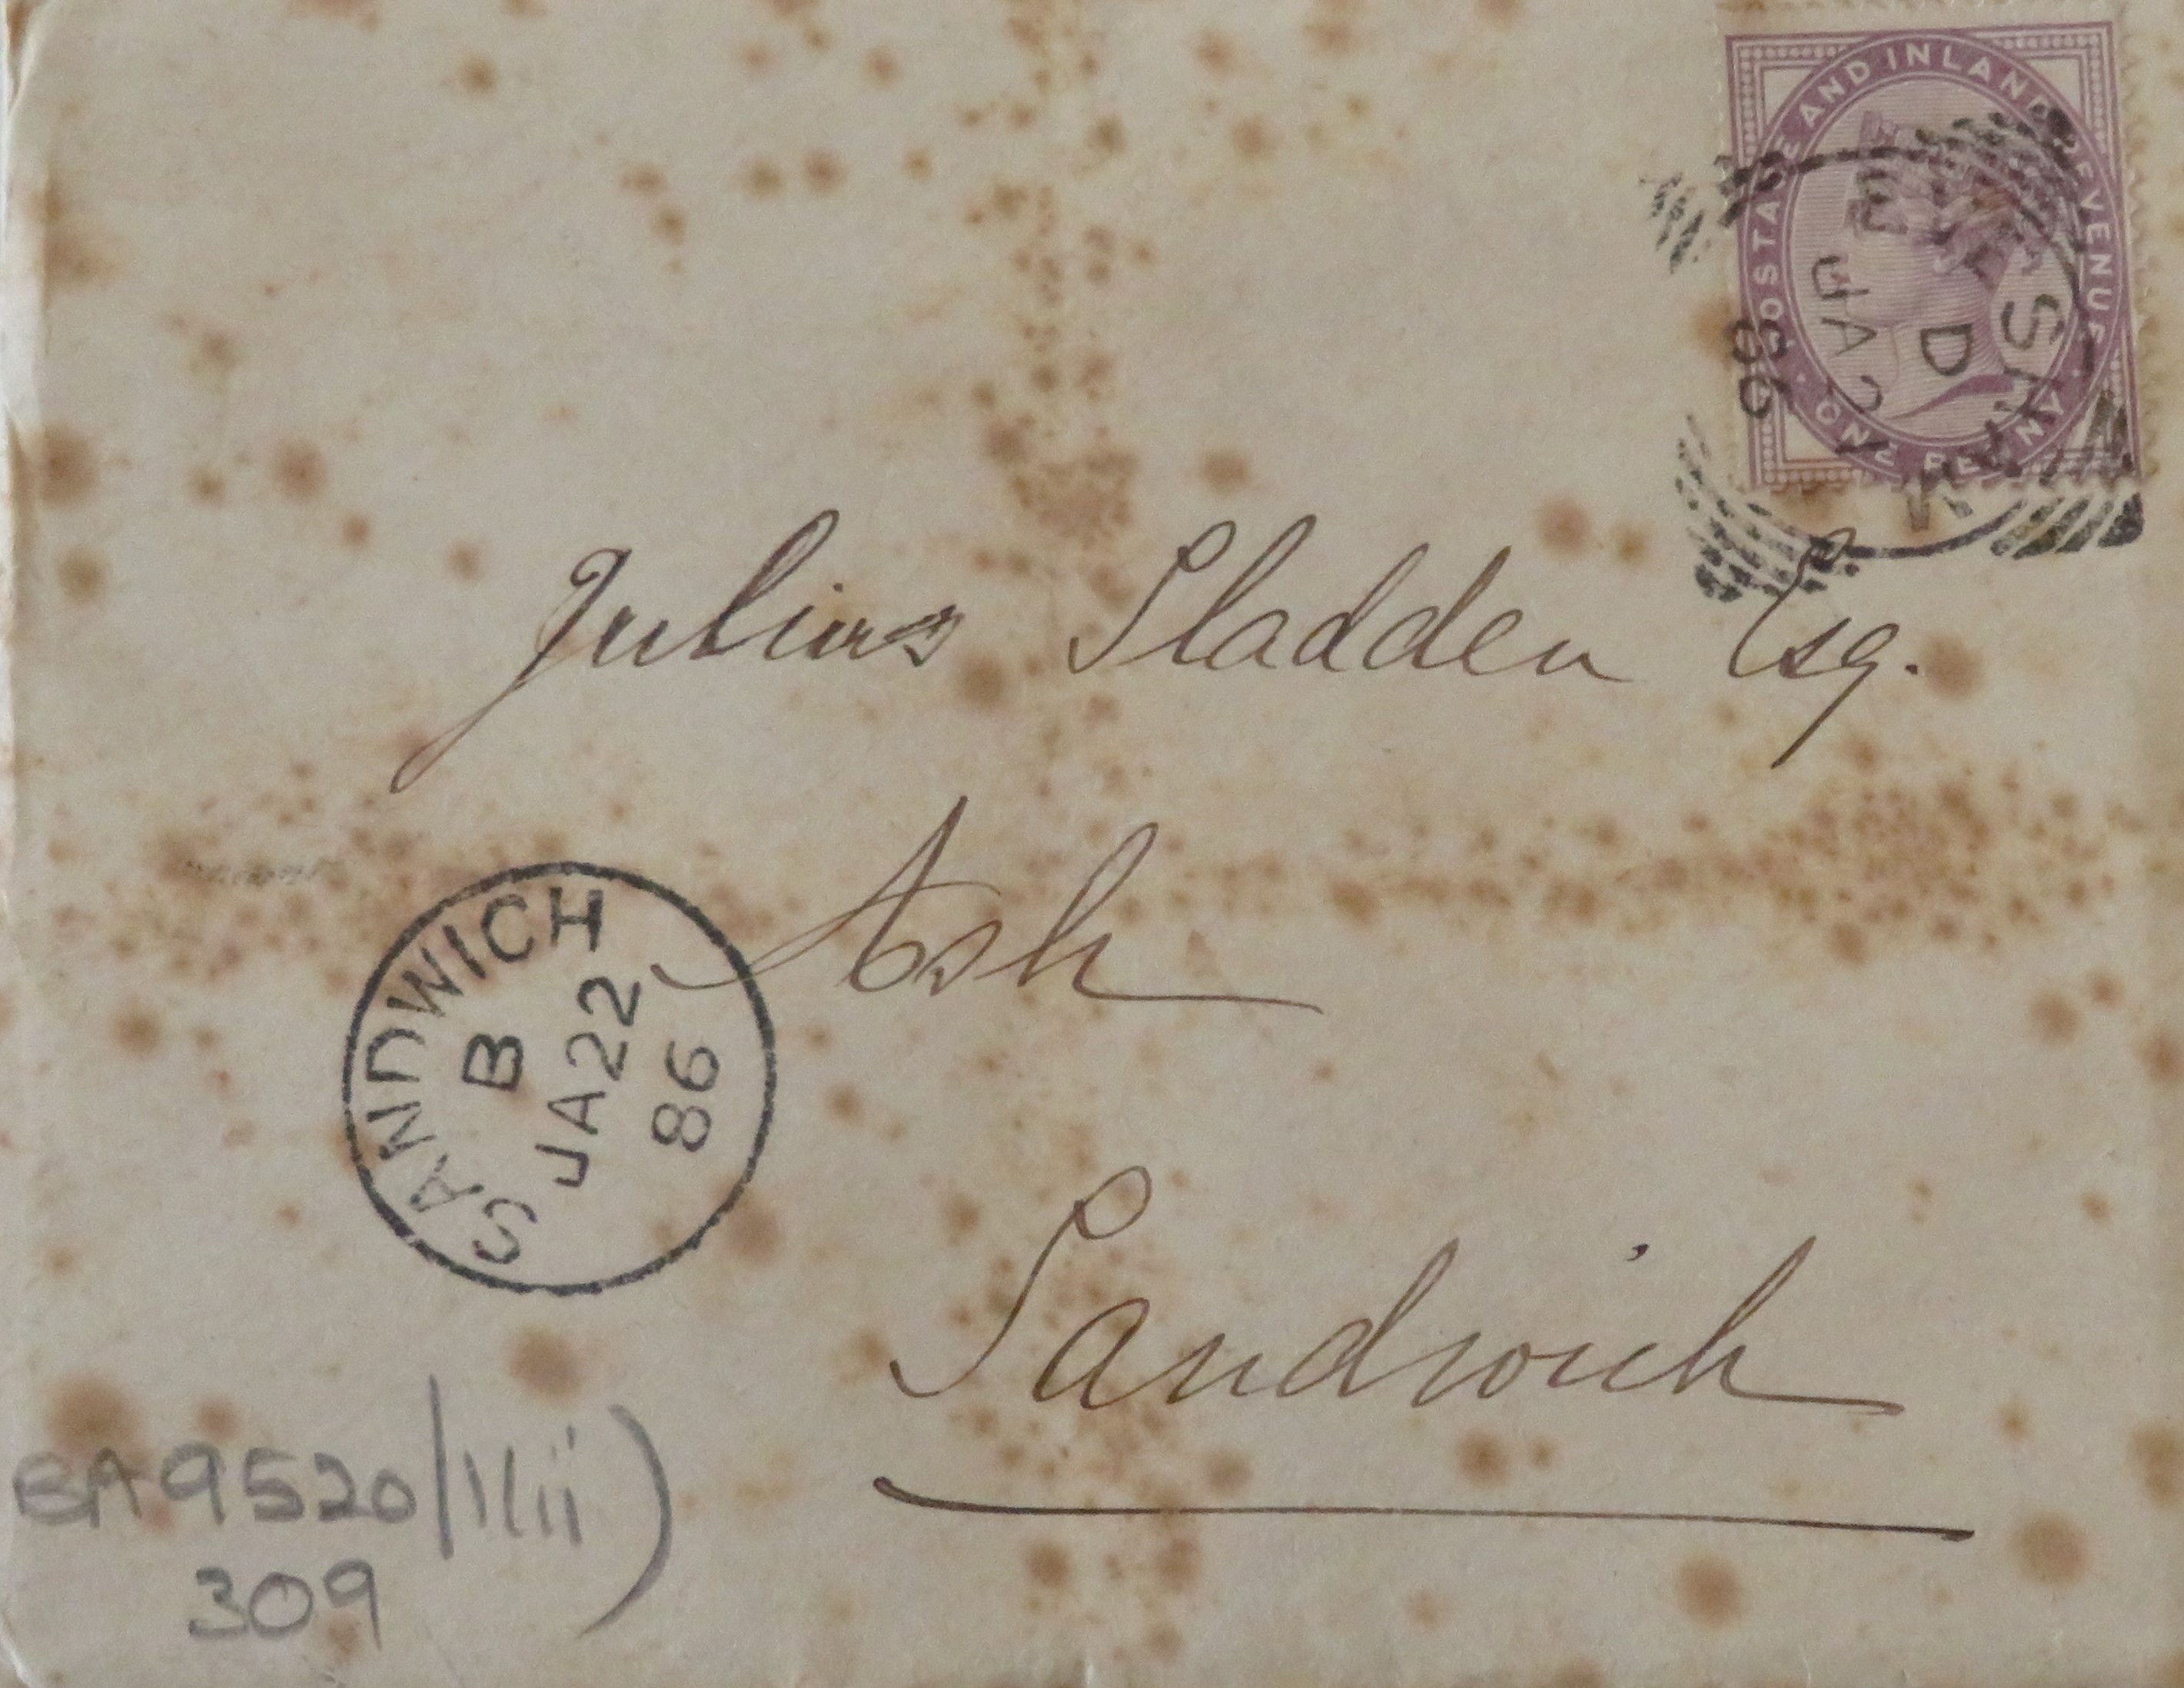 POSTAGE AND INLAND REVENUE
ONE PENNY
EVESHAM
D
JA 21
86
Julius Sladden Esq.
Ash
Sandwich
SANDWICH
B
JA 22
86
EA9520/1/ii)
309